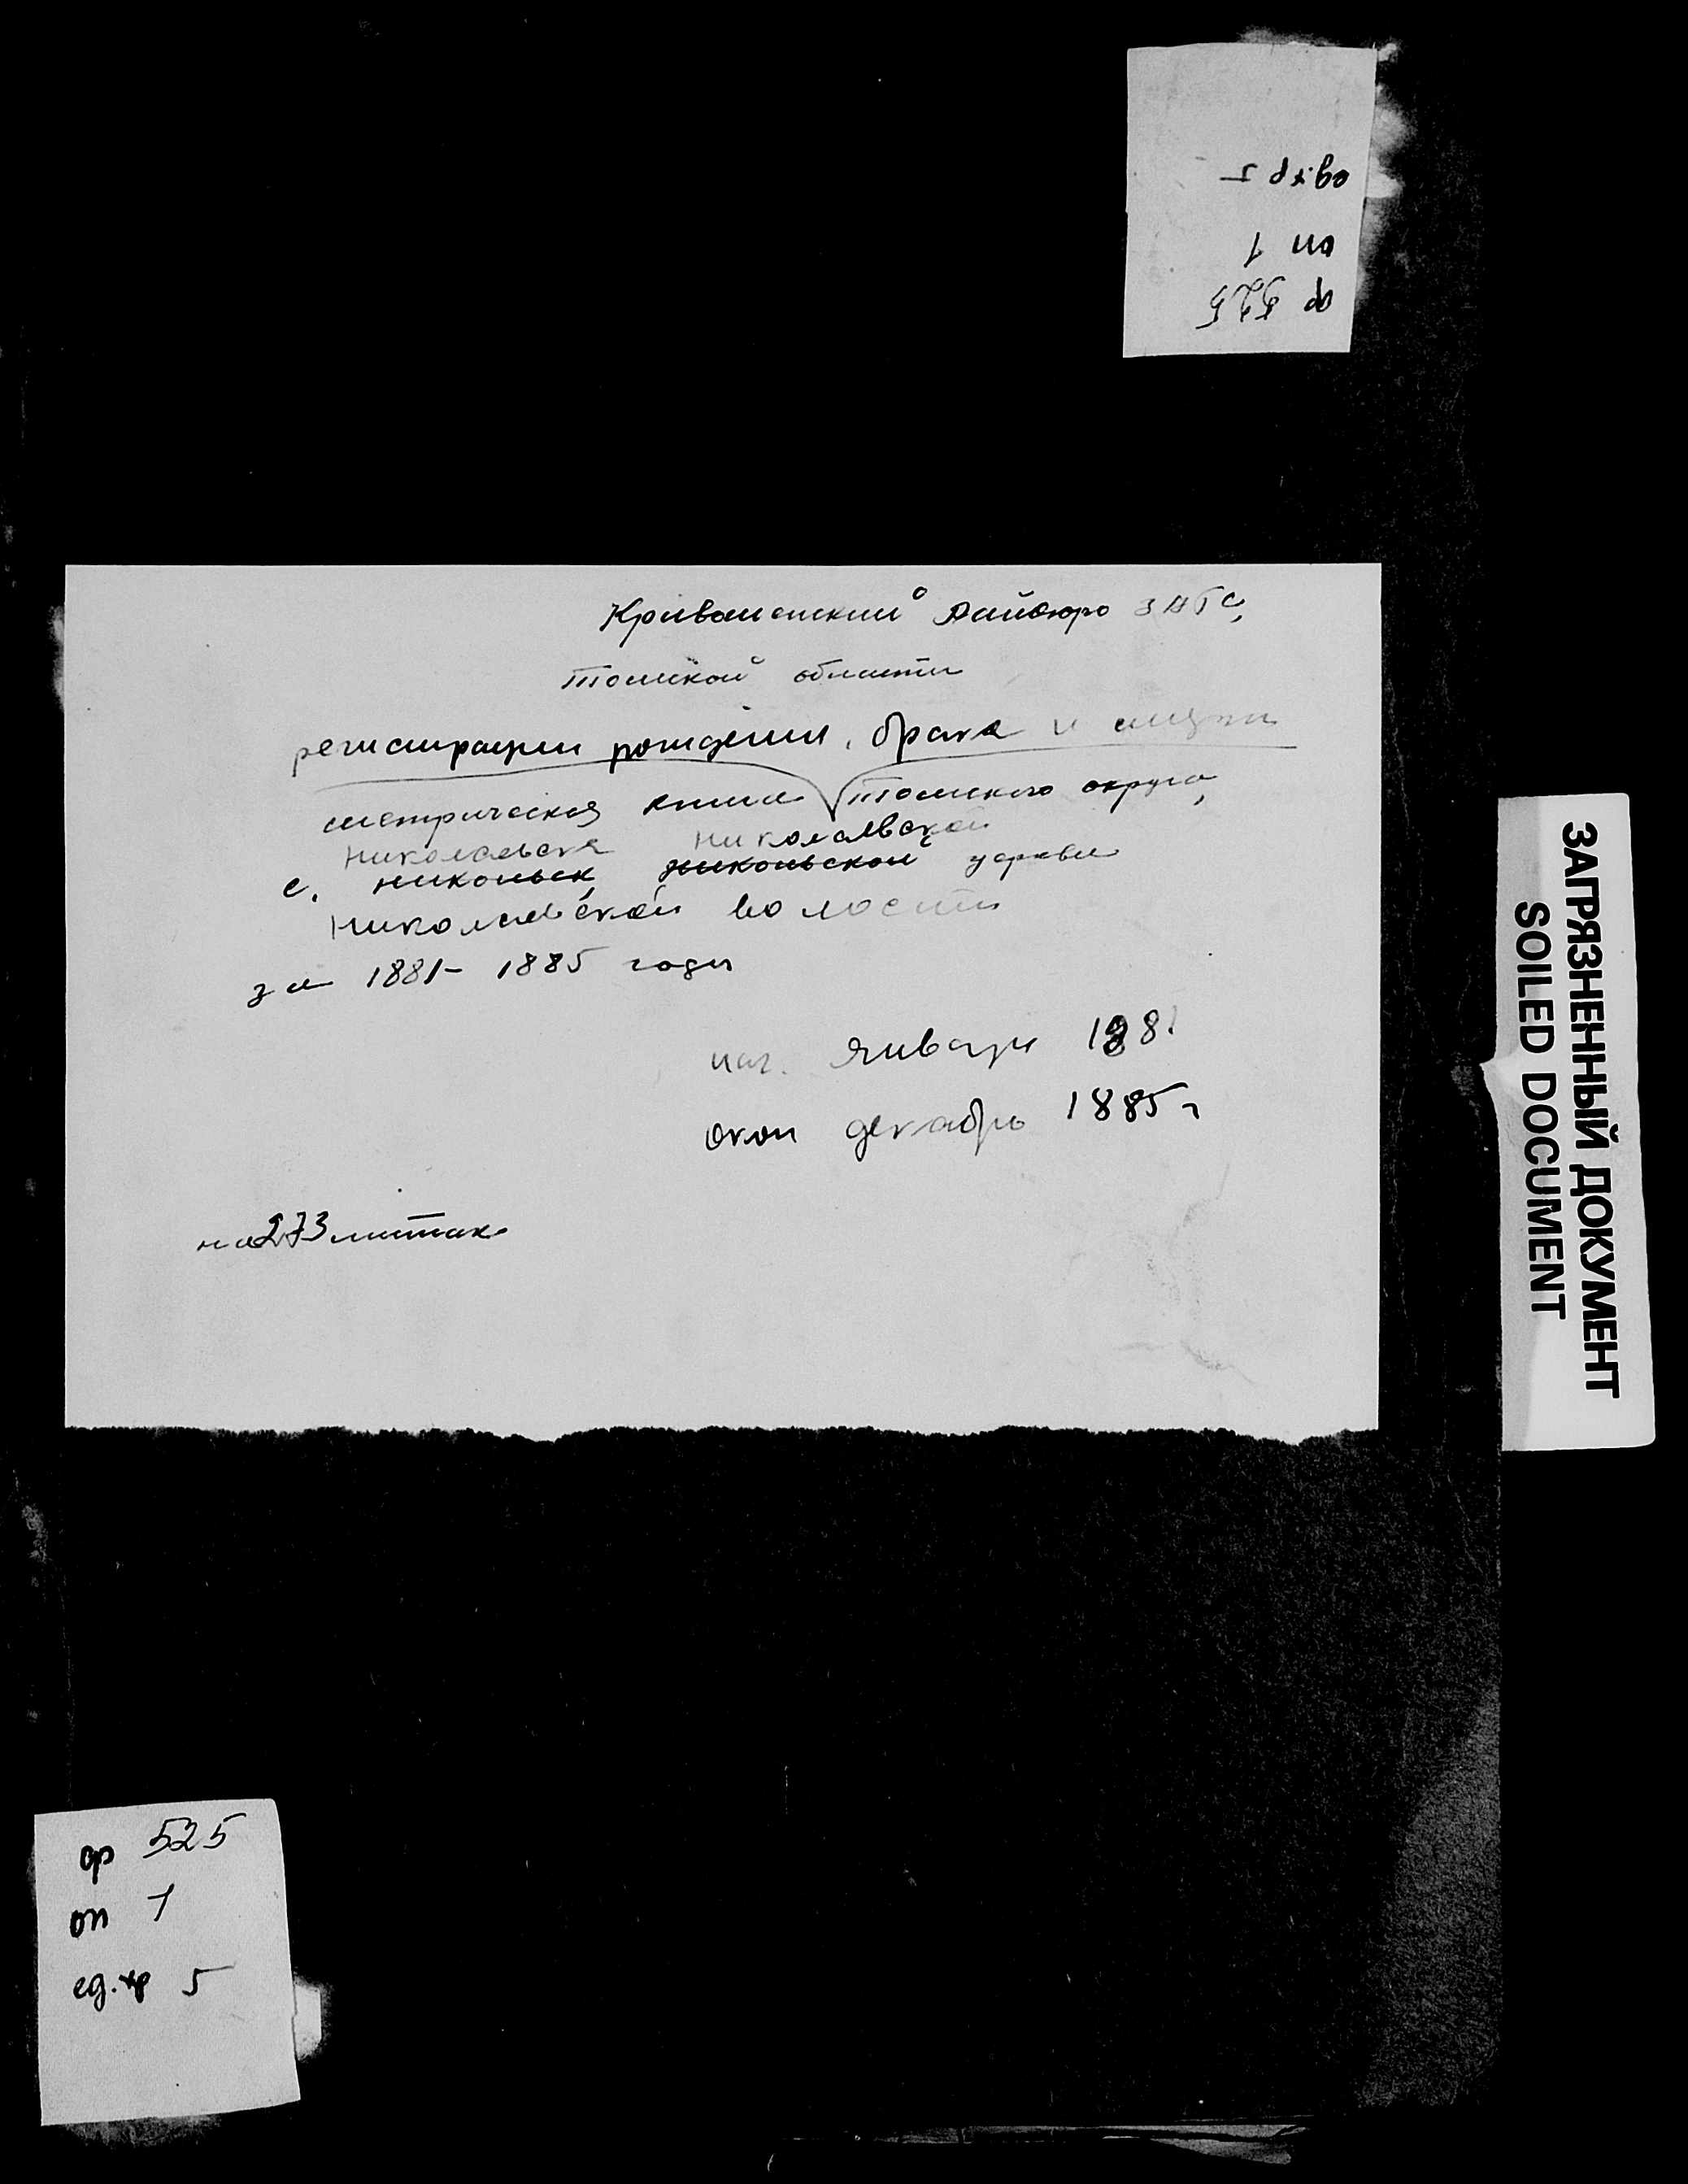 ед.хр 5
оп 1
ф 525
Кривошеинский райбюро ЗАГС,
Томской области
регистрации рождения, брака и смерти
метрическая книга Томского округа,
Николаевск Николаевской
с. Никольск, Никольской церкви
Николаевской волости
за 1881-1885 годы
нач. январь 1881
окон декабрь 1885 г
на 273 листах
ЗАГРЯЗНЕННЫЙ ДОКУМЕНТ
SOILED DOCUMENT
ф 525
оп 1
ед.хр 5